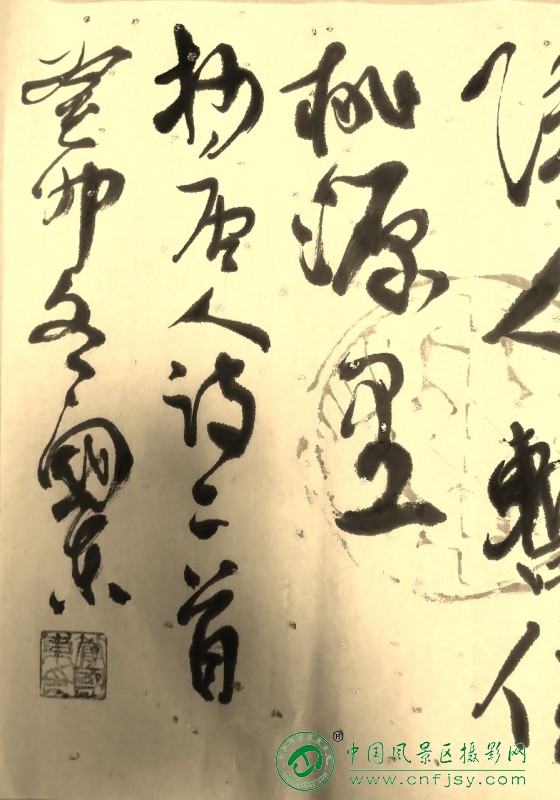 陵人暫
桃源里
抄唐人诗二首
癸卯冬國
中国风景区摄影网
www.cnfjsy.com